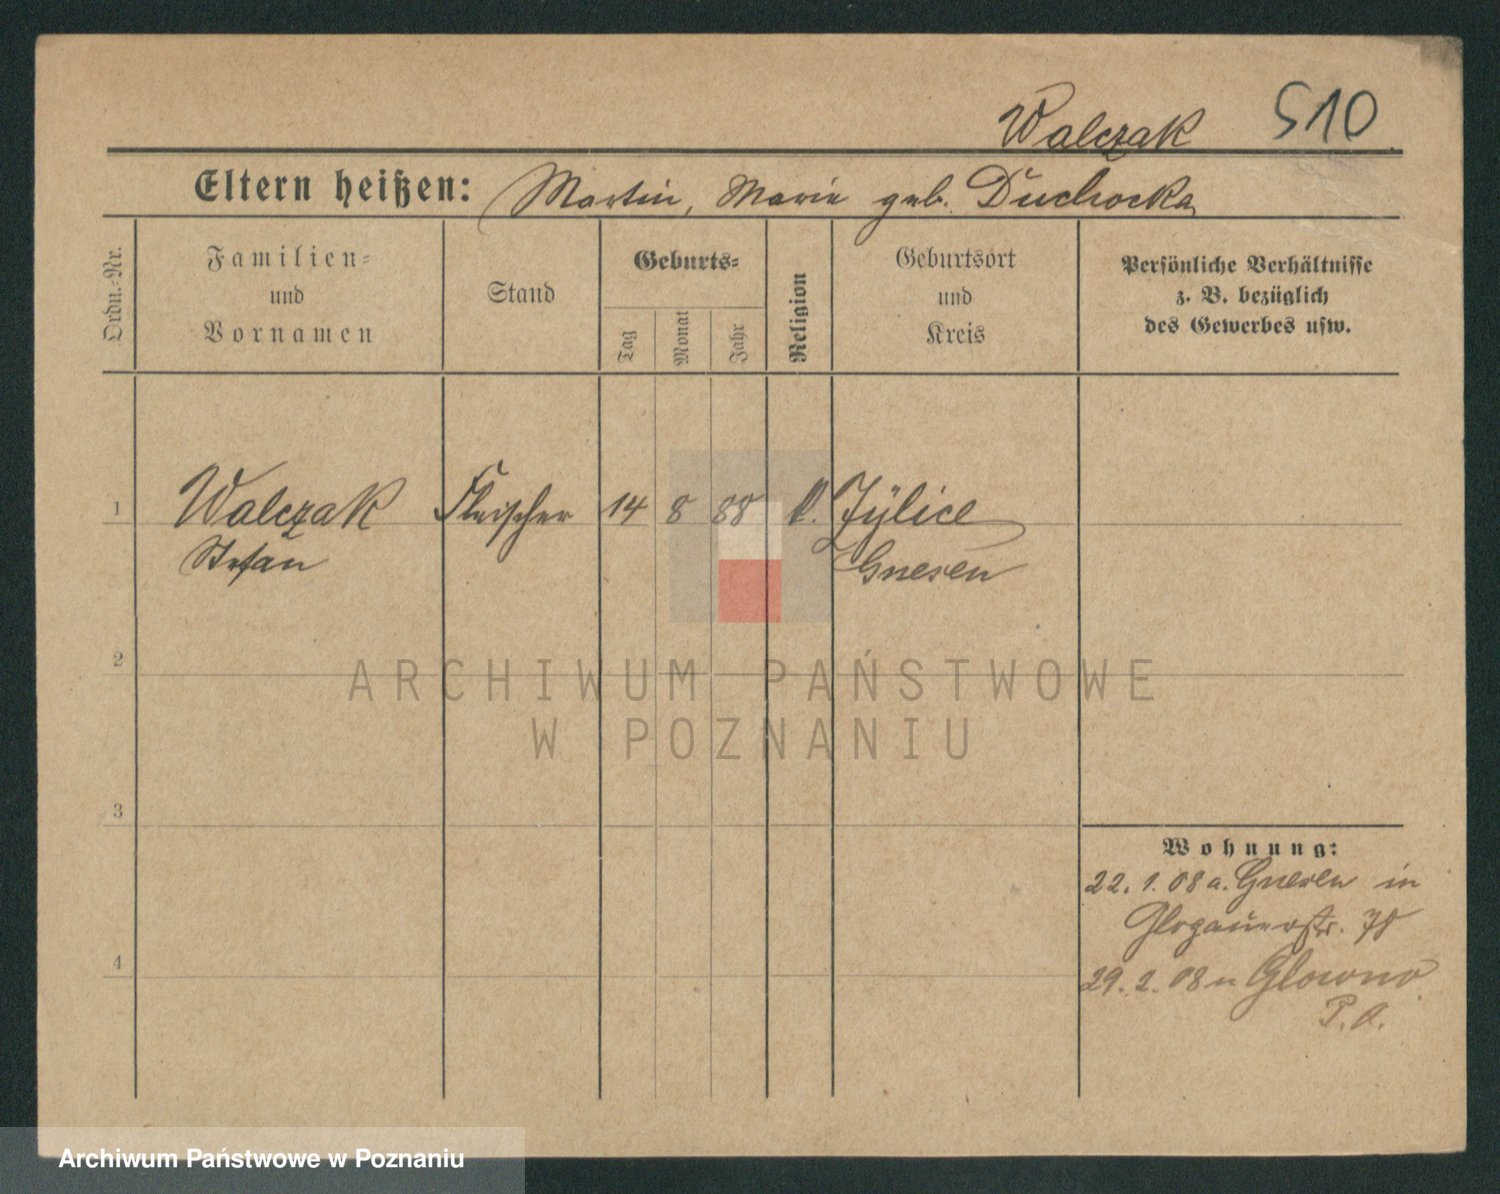 Walczak 510
Eltern heißen: Martin, Marie geb. Duchocka
Ordn.-Nr.
Familien-
und
Vornamen
Stand
Geburts-
Tag
Monat
Jahr
Religion
Geburtsort
und
Kreis
Persönliche Verhältnisse
z. B. bezüglich
des Gewerbes usw.
1 Walczak Fleischer 14 8 88 k. Zÿlice
Stefan Gnesen
2
3
4
Wohnung:
22. 1. 08 a. Gnesen in
Glogauerstr. 78
29. 2. 08 n Glowno
P. O.
ARCHIWUM PAŃSTWOWE
W POZNANIU
Archiwum Państwowe w Poznaniu